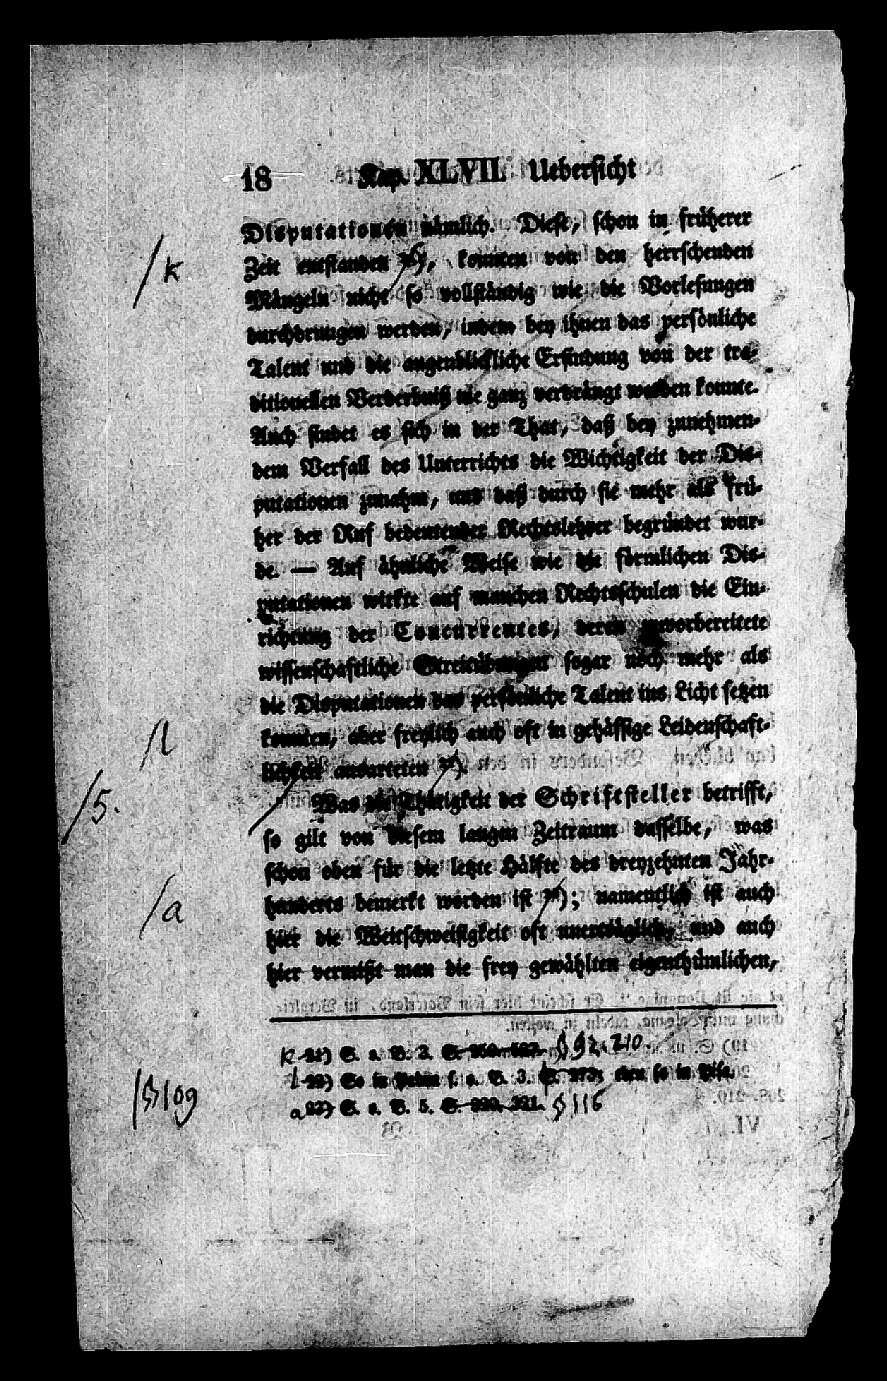 18 Kap. XLVII. Uebersicht
Disputationen nämlich. Diese, schon in früherer
Zeit entstanden 21), konnten von den herrschenden
/k
Mängeln nicht so vollständig wie die Vorlesungen
durchdrungen werden, indem bey ihnen das persönliche
Talent und die augenblickliche Erfindung von der tra-
ditionellen Verderbniß nie ganz verdrängt werden konnte.
Auch findet es sich in der That, daß bey zunehmen-
dem Verfall des Unterrichts die Wichtigkeit der Dis-
putationen zunahm, und daß durch sie mehr als frü-
her der Ruf bedeutender Rechtslehrer begründet wur-
de. — Auf ähnliche Weise wie die förmlichen Dis-
putationen wirkte auf manchen Rechtsschulen die Ein-
richtung der Concurrentes, deren unvorbereitete
wissenschaftliche Streitübungen sogar noch mehr als
die Disputationen das persönliche Talent ins Licht setzen
konnten, aber freylich auch oft in gehässige Leidenschaft-
/l
lichkeit ausarteten 22).
/5.
Was die Thätigkeit der Schriftsteller betrifft,
so gilt von diesem langen Zeitraum dasselbe, was
schon oben für die letzte Hälfte des dreyzehnten Jahr-
hunderts bemerkt worden ist 23); namentlich ist auch
/a
hier die Weitschweifigkeit oft unerträglich, und auch
hier vermißt man die frey gewählten eigenthümlichen,
k 21) S. o. B. 3. S. § 92. 210
l 22) So in Padua s. o. B. 3. S. 273; eben so in Pisa.
/§109
a 23) S. o. B. 5. S. 320. 321. § 116